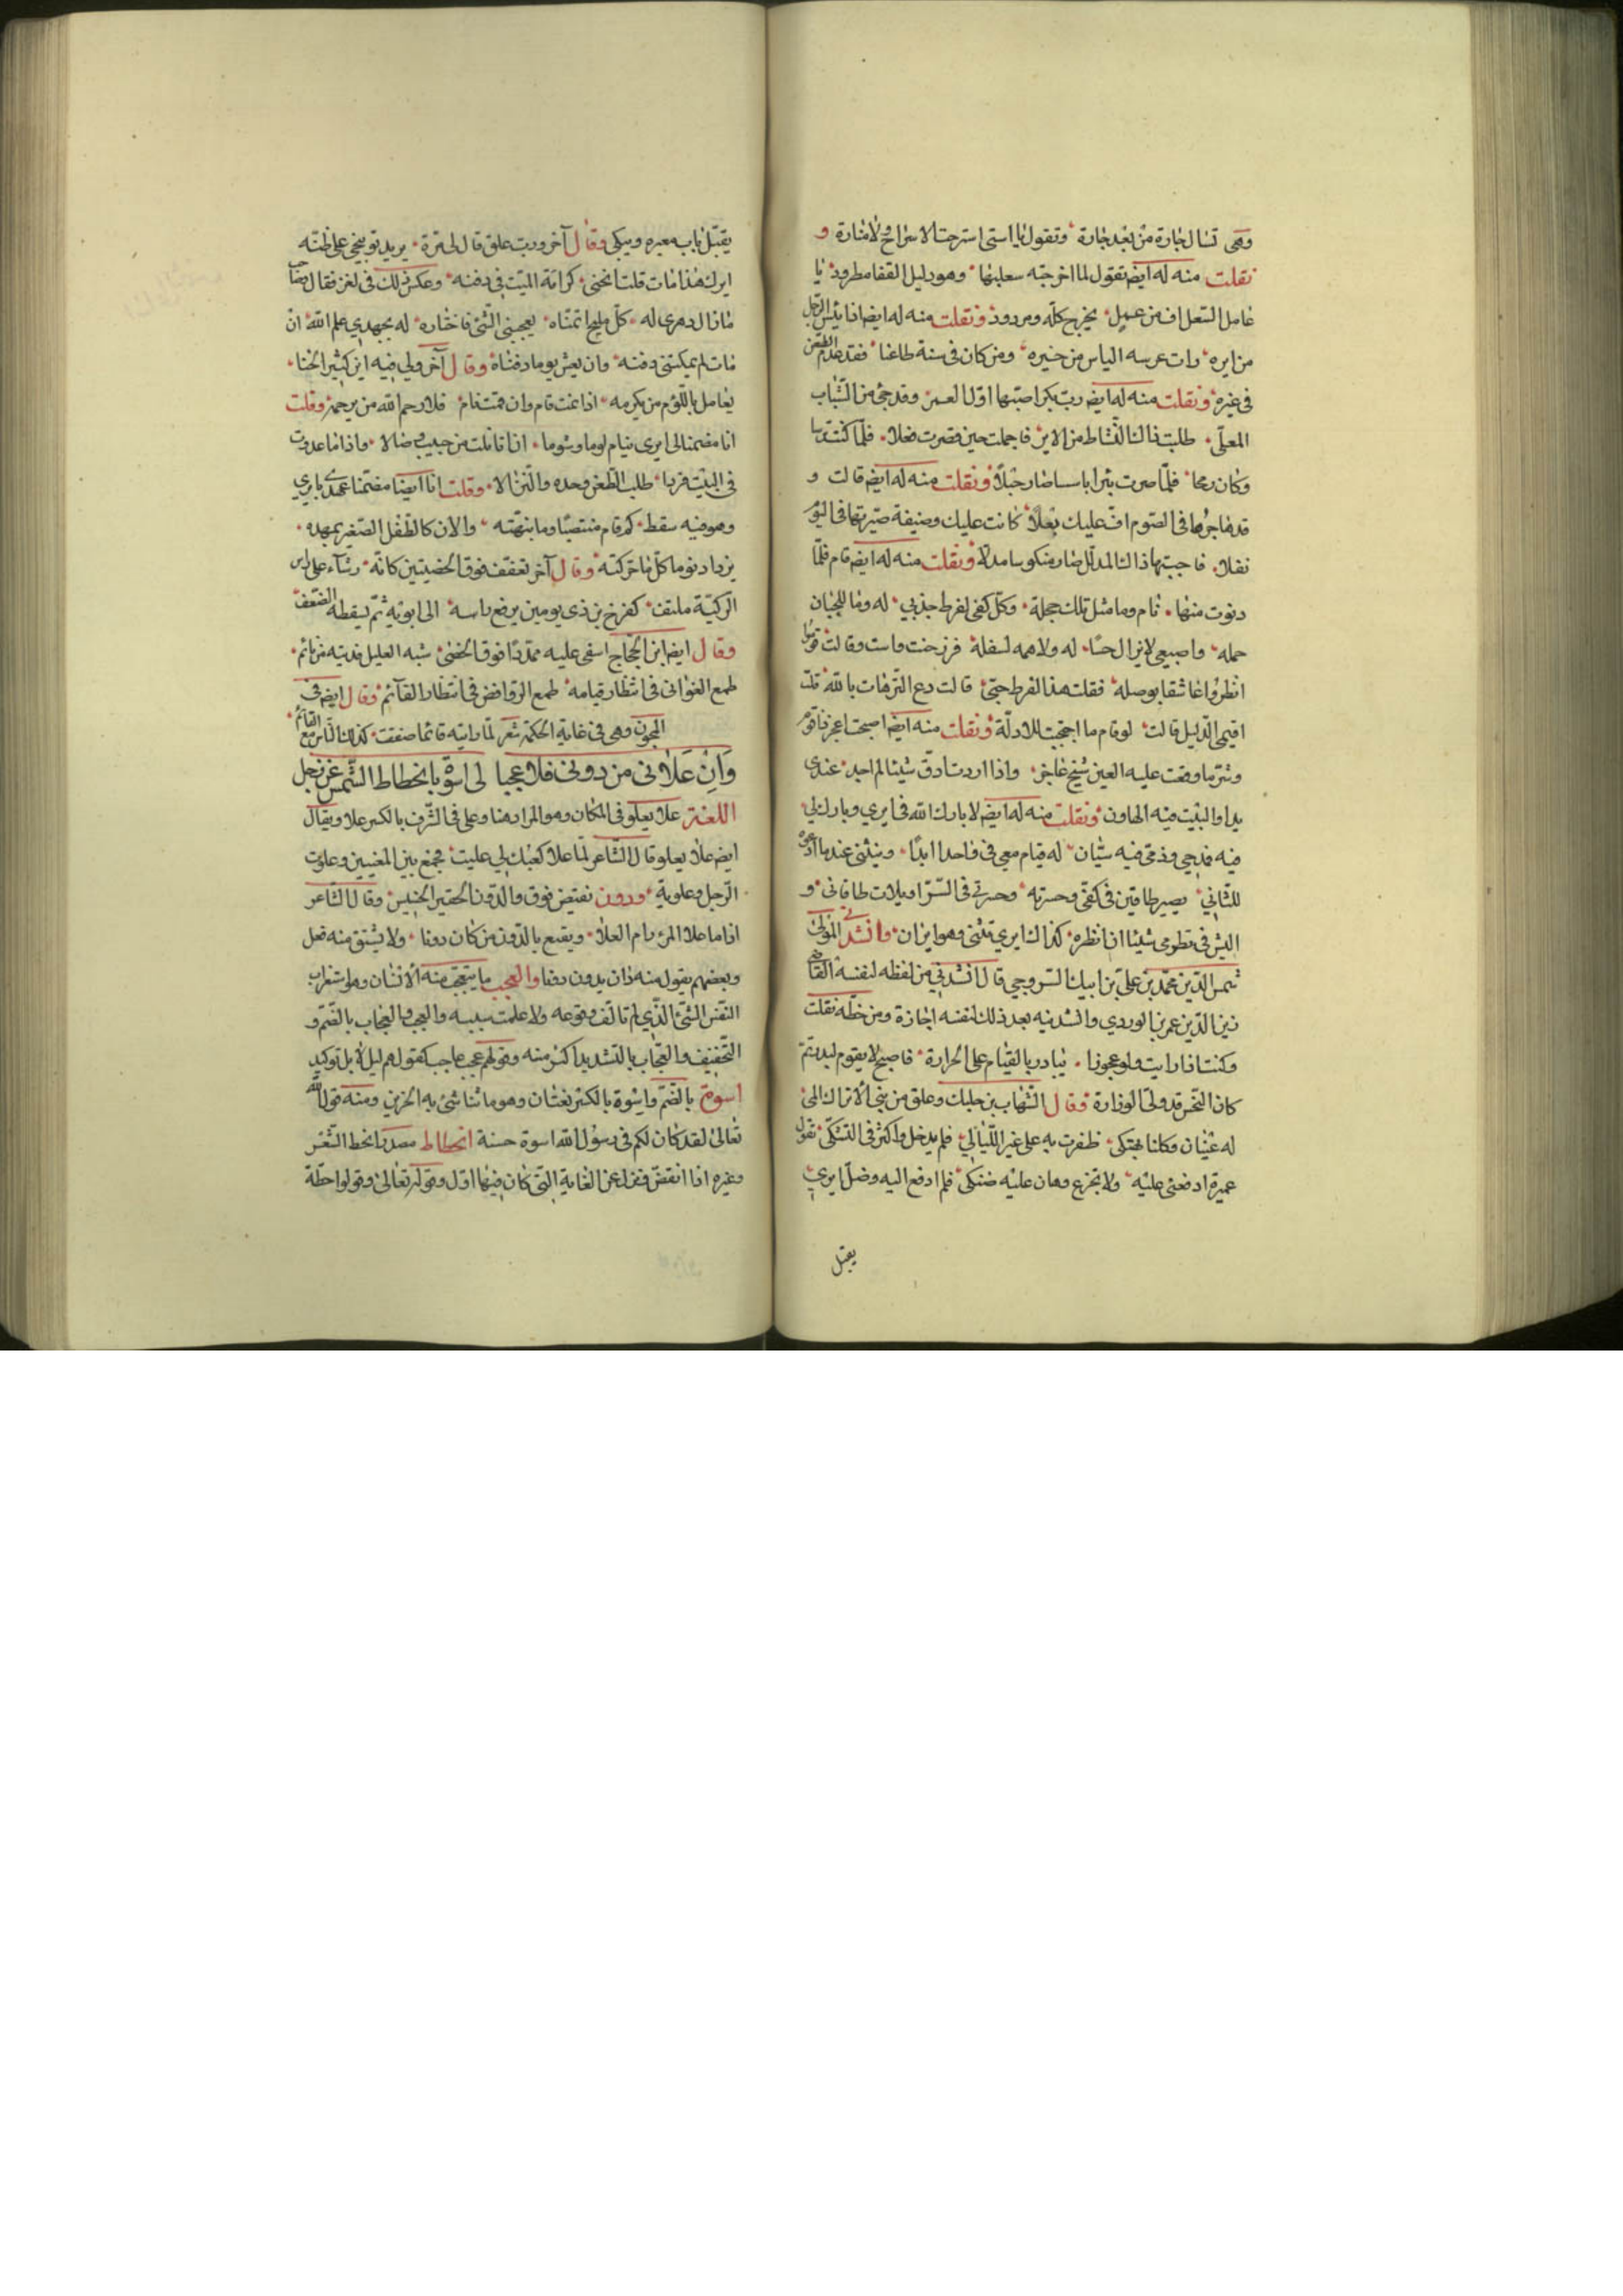 وهى تسال جارة من بعد جارة وتقول يا استى استرحت لا سراج ولا منارة و
نقلت منه له ايضا تقول لما اخرجته سعلبها وهو دليل القفا مطرود يا
عامل السعل اف من عمل يخرج كله ومردود ونقلت منه له ايضا اذا يئس الرجل
من ايره رات عرسه الياس من خيره ومن كان فى سنة طاعنا فقد عدم الطعن
فى غيره ونقلت منه له ايضا رب بكر اصبتها اول العمر وقد جئ من الشباب
المعلى طلبت ذلك النشاط من الاير فاجملت حين قصرت فعلا فلما كنت
وكان رمحا فلما صرت بئرا يا سيدا صار حبلا ونقلت منه له ايضا قالت و
قد فاجرها فى الصوم اف عليك بعلا كانت عليك وضيفة صيرتها فى اليوم
نفلا فاجبتها ذاك المدلل صار منكوسا مدلا ونقلت منه له ايضا قام فلما
دنوت منها نام وما مثل تلك خجلة وكل كفى لفرط جذبي له وما للجبان
حمله واصبعى لا يزال حسا له ولا همه لسفلة فزرجنت ماست وقالت قوموا
انظروا عاشقا بوصله فقلت هذا لفرط حبى قالت دع الترهات بالله قلت
اقيمى الدليل قالت لو قام ما احتجت للادلة ونقلت منه ايضا اصبحت اعجز فاقوم
وشر ما وقعت عليه العين شيخ عاجز واذا اردت ادق شيئا لم اجد عندى
يدا والبيت فيه الهاون ونقلت منه له ايضا لا بارك الله فى ايري وبارك لي
فيه فمدحى وذمى فيه شيان له قيام معي فى واحد ابدا وينثنى عندما ادعوه
للثاني يصير طاقين فى كفى وحسرته وحسرتى فى السراويلات طاقانى و
اليس فى نظومى شيئا ان انظره كذلك ايري ينثنى وهو ايران وانشدنى المولى
شمس الدين محمد بن على بن ايبك السروجى قال انشدنى من لفظه لنفسه القاضى
زين الدين عمر بن الوردي وانشدنيه بعد ذلك لنفسه اجازة ومن خطه نقلت
وكنت اذا رايت ولو عجوزا يبادر بالقيام على الحرارة فاصبح لا يقوم لبدر تم
كان النحس قد ولى الوزارة وقال الشهاب بن جلبك وعلق من بنى الاتراك المى
له عينان وكلتا بفتكى ظفرت به على غير الليالي فلم يدخل واكثر فى التشكى تقول
عميرة ادفعنى عليه ولا تجزع وهان عليه ضنكى فلم ادفع اليه وضل ايري
يقبل
يقبل باب معبره ويبكى وقال آخر ورب علق قال لى مرة يريد توبيخى على ظنته
ايرك هذا مات قلت انحنى كرامة الميت فى دفنه وعكس ذلك فى لغز فقال
مازال دهرى له كل مليح اتمناه يعجبنى الشئ فاختاره له بجهدي علم الله ان
مات لم يمكننى دفنه وان يعش يوما دفناه وقال آخر ولي فيه اير كثير الخنا
يعامل باللؤم من يكرمه اذا نمت قام وان قمت نام فلا رحم الله من يرحمه وقلت
انا مضمنا الى ايرى ينام لوما وشوما اذا ما نلت من حبيب وصالا واذا ما عدوت
فى البيت فردا طلب الطعن وحده والنزالا وقلت انا ايضا مضمنا عهدى بايري
وهو فيه سقط كم قام منتصبا وما نبهته والان كالطفل الصغير بمهده
يزداد نوما كل ما حركته وقال آخر تعقف فوق الخصيتين كانه رشاء على راس
الركية ملتف كفرخ بن ذى يومين يرفع راسه الى ابويه ثم يسقطه الضعف
وقال ايضا ابن الحجاج اسفى عليه ممددا فوق الخصى شبه العليل فديته من نائم
طمع الغوانى فى انتظار قيامه طمع الروافض فى انتظار القآئم وقال ايضا فى
المجون وهى فى غاية الحكمة شعر لما راينه قائما صفقت كذلك الناس مع القائم
وَانِ عَلَانى من دونى فلا عجبا لى اسوة بانحطاط الشمس عن زحل
اللغة علا يعلو فى المكان وهو المراد هنا وعلى فى الشرف بالكسر علا ويقال
ايضا علا يعلو قال الشاعر لما علا كعبك لي عليت فجمع بين المعنيين وعلوت
الرجل وعلوية ودون نقيض فوق والدون الحقير الخسيس وقال الشاعر
اذا ما علا المرء رام العلا ويقنع بالدون من كان دونا ولا يشتق منه فعل
وبعضهم يقول منه دان يدون دونا والعجب ما يتعجب منه الانسان وهو استغراب
النفس الشئ الذي لم تالف وقوعه ولا علمت بسببه والعجب والعجاب بالضم و
التخفيف والعجاب بالتشديد اكثر منه وقولهم عجب عاجب كقولهم ليل لايل توكيد
اسوة بالضم واسوة بالكسر لغتان وهو ما تتاسى به الحزين ومنه قول الله
تعالى لقد كان لكم فى رسول الله اسوة حسنة انحطاط مصدر انحط السعر
وغيره اذا انقض ونزل عن الغاية التى كان فيها اول وقوله تعالى وقولوا حطة